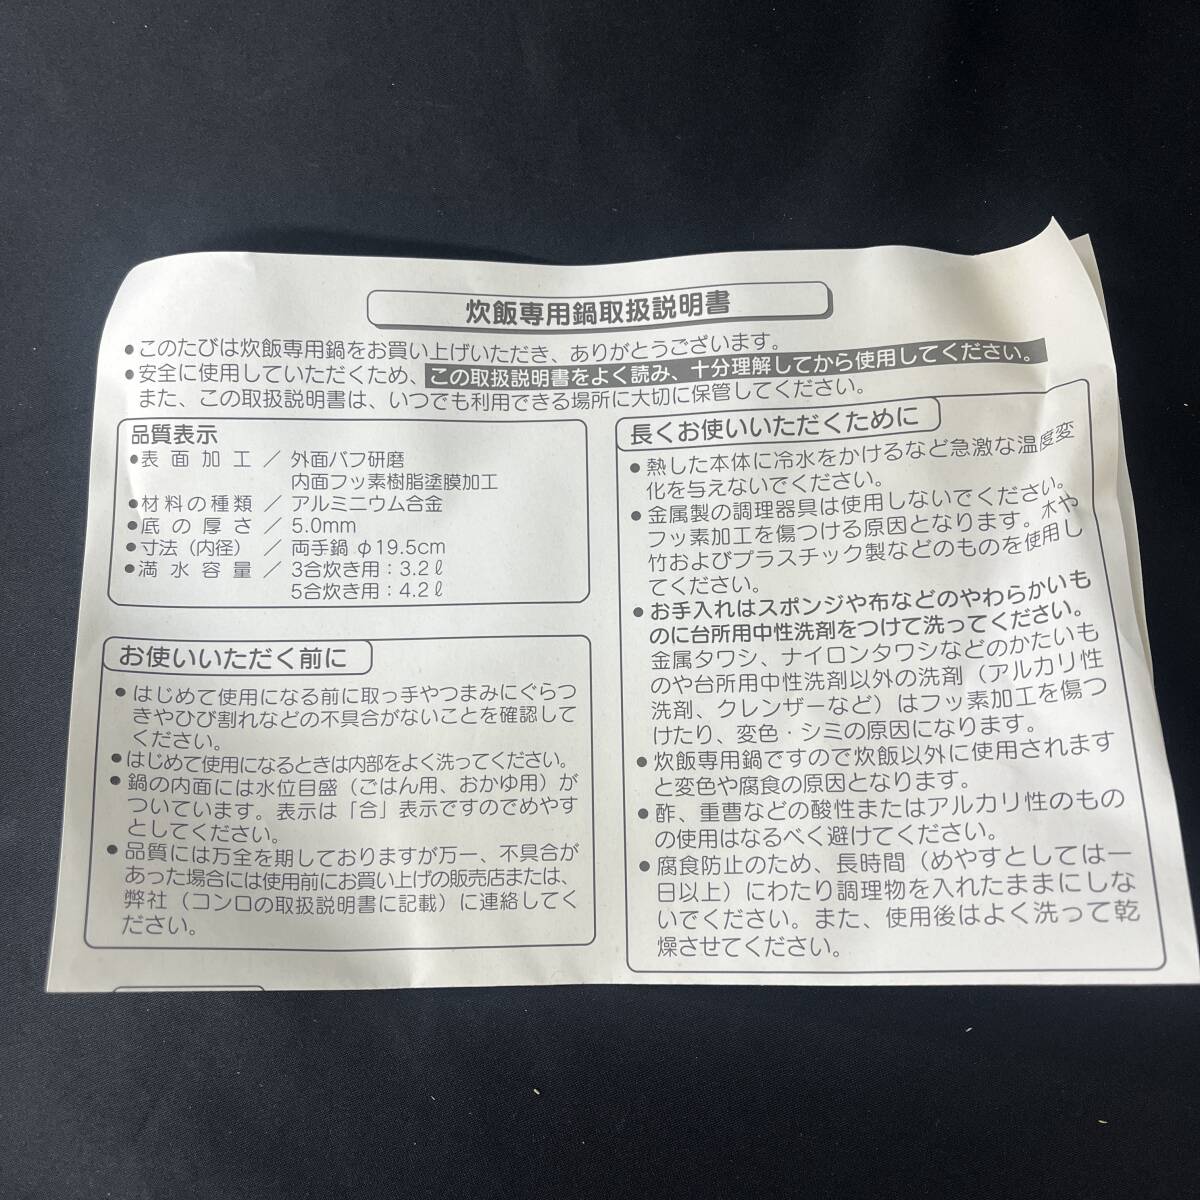 炊飯専用鍋取扱説明書
●このたびは炊飯専用鍋をお買い上げいただき、ありがとうございます。
●安全に使用していただくため、この取扱説明書をよく読み、十分理解してから使用してください。
また、この取扱説明書は、いつでも利用できる場所に大切に保管してください。
品質表示
●表面加工／外面バフ研磨
内面フッ素樹脂塗膜加工
●材料の種類／アルミニウム合金
●底の厚さ／5.0mm
●寸法（内径）／両手鍋 φ19.5cm
●満水容量／3合炊き用：3.2ℓ
5合炊き用：4.2ℓ
お使いいただく前に
●はじめて使用になる前に取っ手やつまみにぐらつ
きやひび割れなどの不具合がないことを確認して
ください。
●はじめて使用になるときは内部をよく洗ってください。
●鍋の内面には水位目盛（ごはん用、おかゆ用）が
ついています。表示は「合」表示ですのでめやす
としてください。
●品質には万全を期しておりますが万一、不具合が
あった場合には使用前にお買い上げの販売店または、
弊社（コンロの取扱説明書に記載）に連絡してく
ださい。
長くお使いいただくために
●熱した本体に冷水をかけるなど急激な温度変
化を与えないでください。
●金属製の調理器具は使用しないでください。
フッ素加工を傷つける原因となります。木や
竹およびプラスチック製などのものを使用し
てください。
●お手入れはスポンジや布などのやわらかいも
のに台所用中性洗剤をつけて洗ってください。
金属タワシ、ナイロンタワシなどのかたいも
のや台所用中性洗剤以外の洗剤（アルカリ性
洗剤、クレンザーなど）はフッ素加工を傷つ
けたり、変色・シミの原因になります。
●炊飯専用鍋ですので炊飯以外に使用されます
と変色や腐食の原因となります。
●酢、重曹などの酸性またはアルカリ性のもの
の使用はなるべく避けてください。
●腐食防止のため、長時間（めやすとしては一
日以上）にわたり調理物を入れたままにしな
いでください。また、使用後はよく洗って乾
燥させてください。